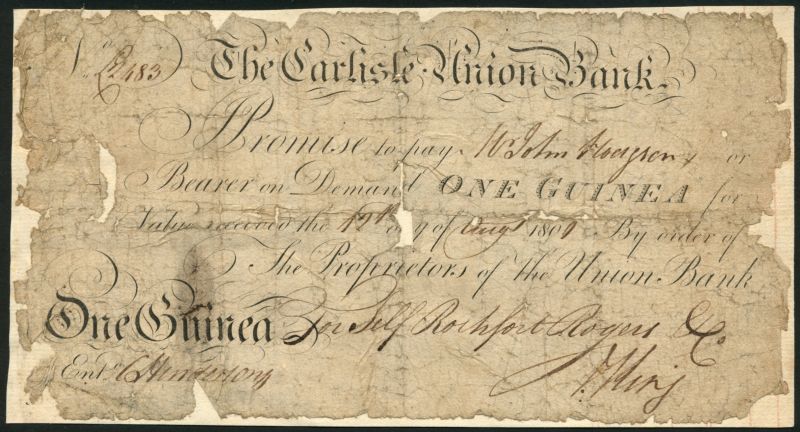 The Carlisle Union Bank.
I Promise to pay Mr John Hodgson or
Bearer on Demand ONE GUINEA for
Value received the 12th day of Augt 180 By order of
The Proprietors of the Union Bank
One Guinea For Self Rochfort Rogers & Co
Entd Henderson